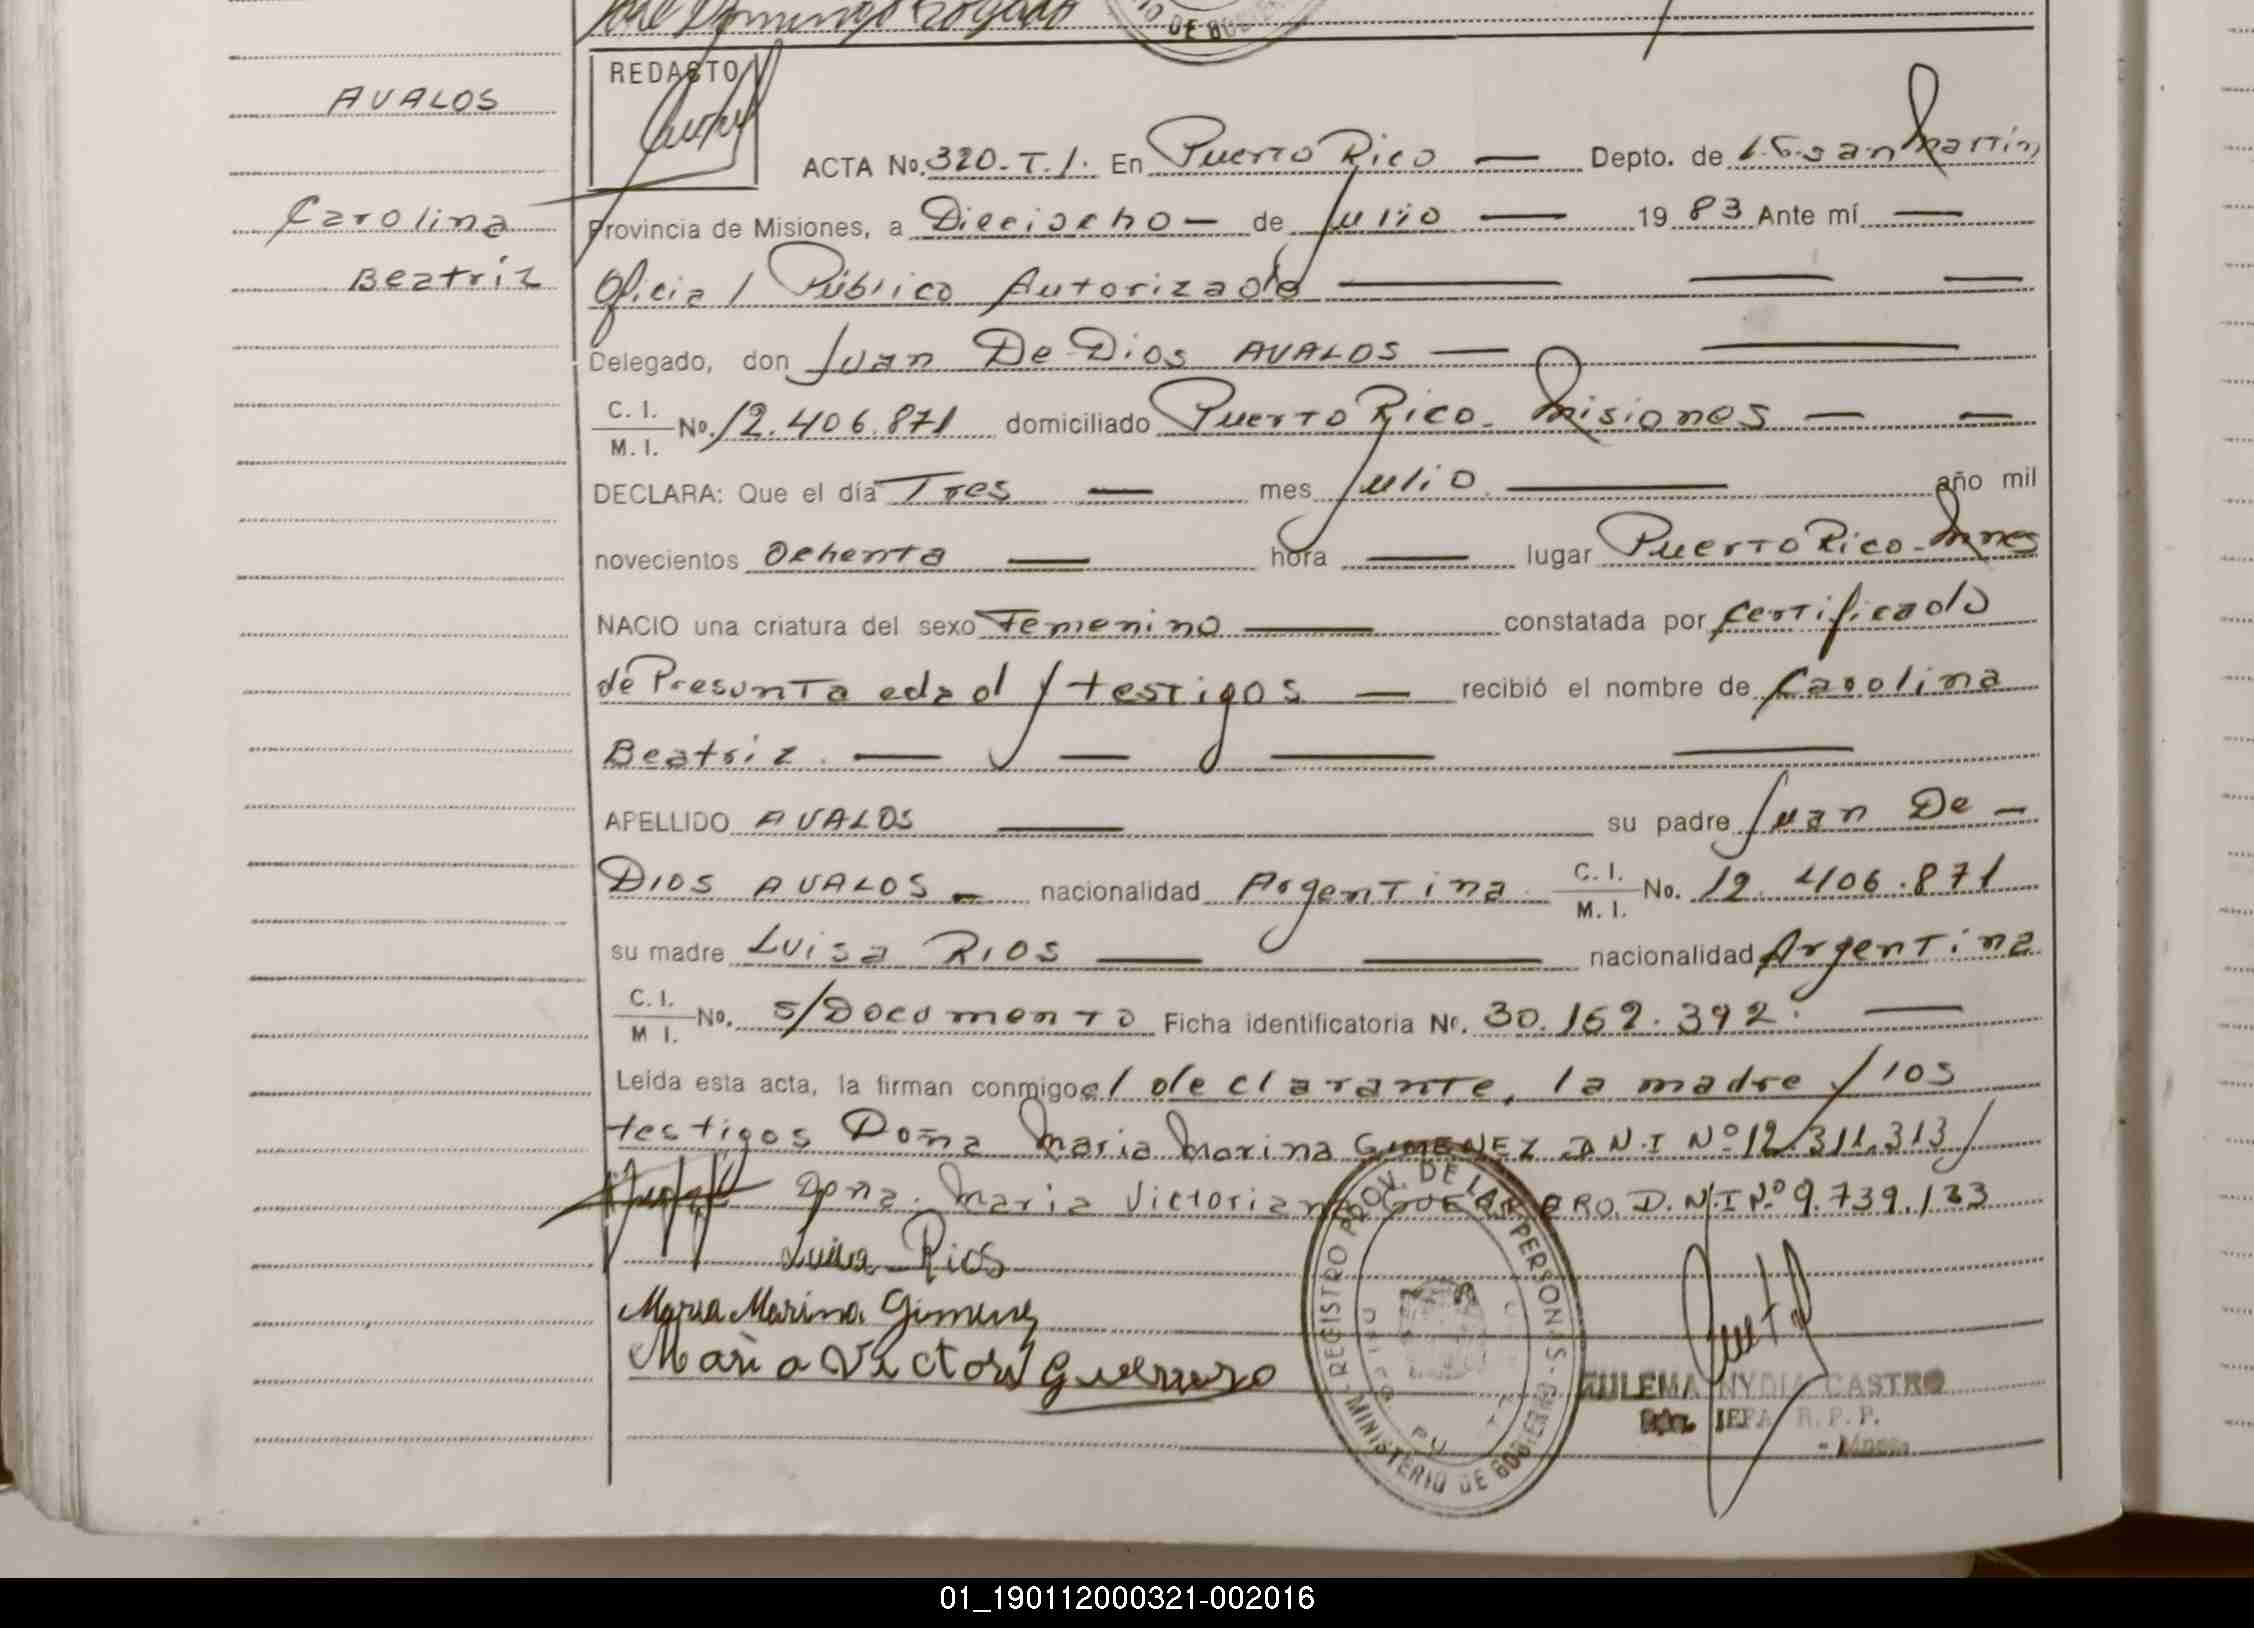 José Domingo
DE
AVALOS
Carolina
Beatriz
REDACTO
ACTA No. 320-T.1. En Puerto Rico — Depto. de L.G. San Martín
Provincia de Misiones, a Dieciocho — de Julio — 19 83 Ante mí —
Oficial Público Autorizado —
Delegado, don Juan De Dios AVALOS —
C. I.
M. I. No. 12.406.871 domiciliado Puerto Rico - Misiones —
DECLARA: Que el día Tres — mes Julio — año mil
novecientos ochenta — hora — lugar Puerto Rico - Mnes
NACIO una criatura del sexo Femenino — constatada por certificado
de Presunta edad y testigos — recibió el nombre de Carolina
Beatriz. —
APELLIDO AVALOS — su padre Juan De —
DIOS AVALOS — nacionalidad Argentina. C. I.
M. I. No. 12.406.871
su madre Luisa RIOS — nacionalidad Argentina
C. I.
M I. No. s/Documento Ficha identificatoria Nr. 30.162.392. —
Leída esta acta, la firman conmigo el declarante, la madre y los
testigos Doña Maria Marina GIMENEZ D N.I Nº 12.311.313 /
Doña. Maria Victoriana GUERRERO. D.N.I Nº 9.739.133
Luisa Rios
Maria Marina Gimenez
Maria Victori Guerrero
REGISTRO PROV. DE LAS PERSONAS - MINISTERIO DE GOBIERNO
ZULEMA NYDIA CASTRO
JEFA R. P. P.
- Mnes.
01_190112000321-002016